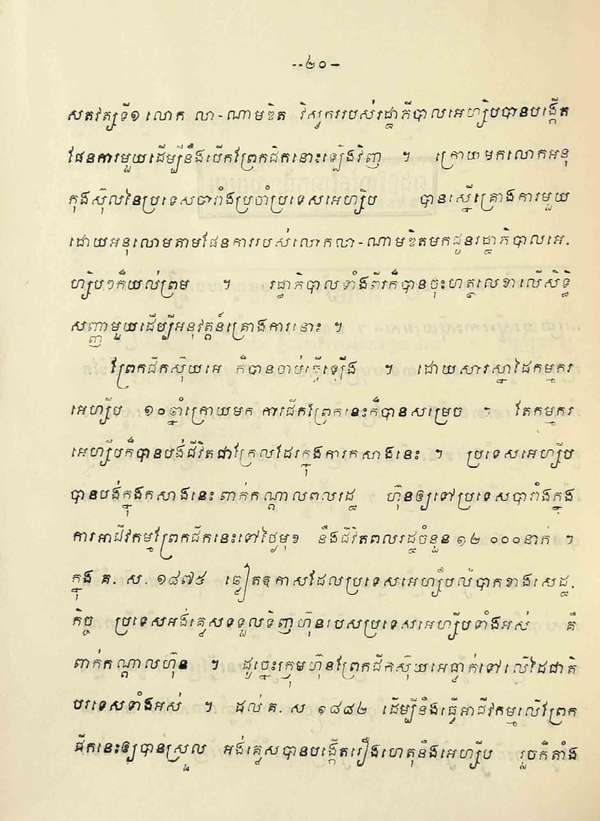 --២០-
សតវត្សទី១ លោក លា-ណាមឌិត វិស្វកររបស់រដ្ឋាភិបាលអេហ្ស៊ិបបានបង្កើត
ផែនការមួយដើម្បីនឹងបើកព្រែកជីកនោះឡើងវិញ ។ ក្រោយមកលោកអនុ
កុងស៊ុលនៃប្រទេសបារាំងប្រចាំប្រទេសអេហ្ស៊ិប បានស្នើគ្រោងការមួយ
ដោយអនុលោមតាមផែនការរបស់លោកលា-ណាមឌិតមកជូនរដ្ឋាភិបាលអេ.
ហ្ស៊ិបៗក៏យល់ព្រម ។ រដ្ឋាភិបាលទាំងពីរក៏បានចុះហត្ថលេខាលើសិទ្ធិ
សញ្ញាមួយដើម្បីអនុវត្តន៍គ្រោងការនោះ ។
ព្រែកជីកស៊ុយអេ ក៏បានចាប់ធ្វើឡើង ។ ដោយសារស្នាដៃកម្មករ
អេហ្ស៊ិប ១០ឆ្នាំក្រោយមក ការជីកព្រែកនេះក៏បានសម្រេច ។ តែកម្មករ
អេហ្ស៊ិបក៏បានបង់ជីវិតជាក្រែលដែរក្នុងការកសាងនេះ ។ ប្រទេសអេហ្ស៊ិប
បានបង់ក្នុងកសាងនេះ ពាក់កណ្ដាលពលរដ្ឋ ហ៊ុនឲ្យទៅប្រទេសបារាំងក្នុង
ការអាជីវកម្មព្រែកជីកនេះទៅថ្ងៃមុខ នឹងជីវិតពលរដ្ឋចំនួន ១២ ០០០នាក់ ។
ក្នុង គ. ស. ១៨៧៥ ឆ្លៀតឱកាសដែលប្រទេសអេហ្ស៊ិបលំបាកខាងសេដ្ឋ.
កិច្ច ប្រទេសអង់គ្លេសទទួលទិញហ៊ុនរបស់ប្រទេសអេហ្ស៊ិបទាំងអស់ គឺ
ពាក់កណ្ដាលហ៊ុន ។ ដូច្នេះក្រុមហ៊ុនព្រែកជីកស៊ុយអេធ្លាក់ទៅលើដៃជាតិ
បរទេសទាំងអស់ ។ ដល់ គ. ស ១៨៨២ ដើម្បីនឹងធ្វើអាជីវកម្មលើព្រែក
ជីកនេះឲ្យបានស្រួល អង់គ្លេសបានបង្កើតរឿងហេតុនឹងអេហ្ស៊ិប រួចក៏តាំង